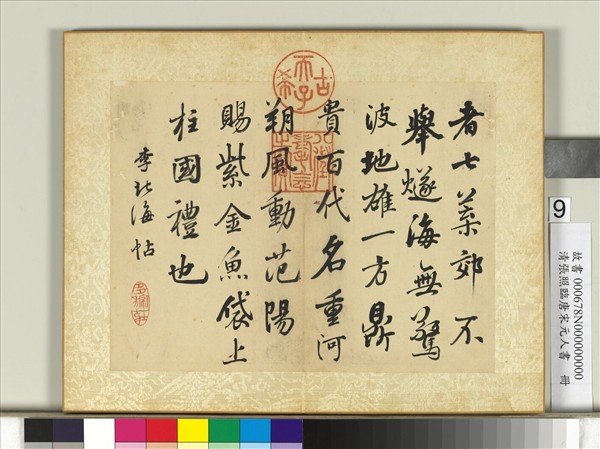 者七葉郊不
舉燧海無驚
波地雄一方鼎
貴百代名重河
朔風動范陽
賜紫金魚袋上
柱國禮也
李北海帖
古希天子
八徵耄念之寶
9
故書 000678N000000000
清張照臨唐宋元人書 冊